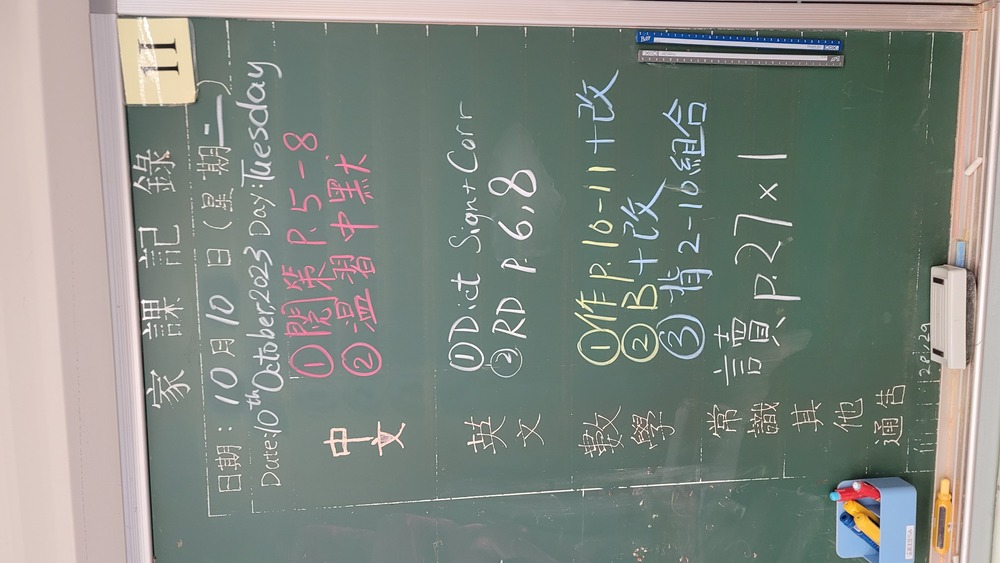 11
家課記錄
日期：10月10日（星期二）
Date:10th October2023 Day:Tuesday
中文
①閱策 P.5-8
②溫習中默
英文
①Dict Sign+Corr
②RD P.6,8
數學
①作P.10-11+改
②B+改
③指2-10組合
常識
讀P.27×1
其他
通告
28,29